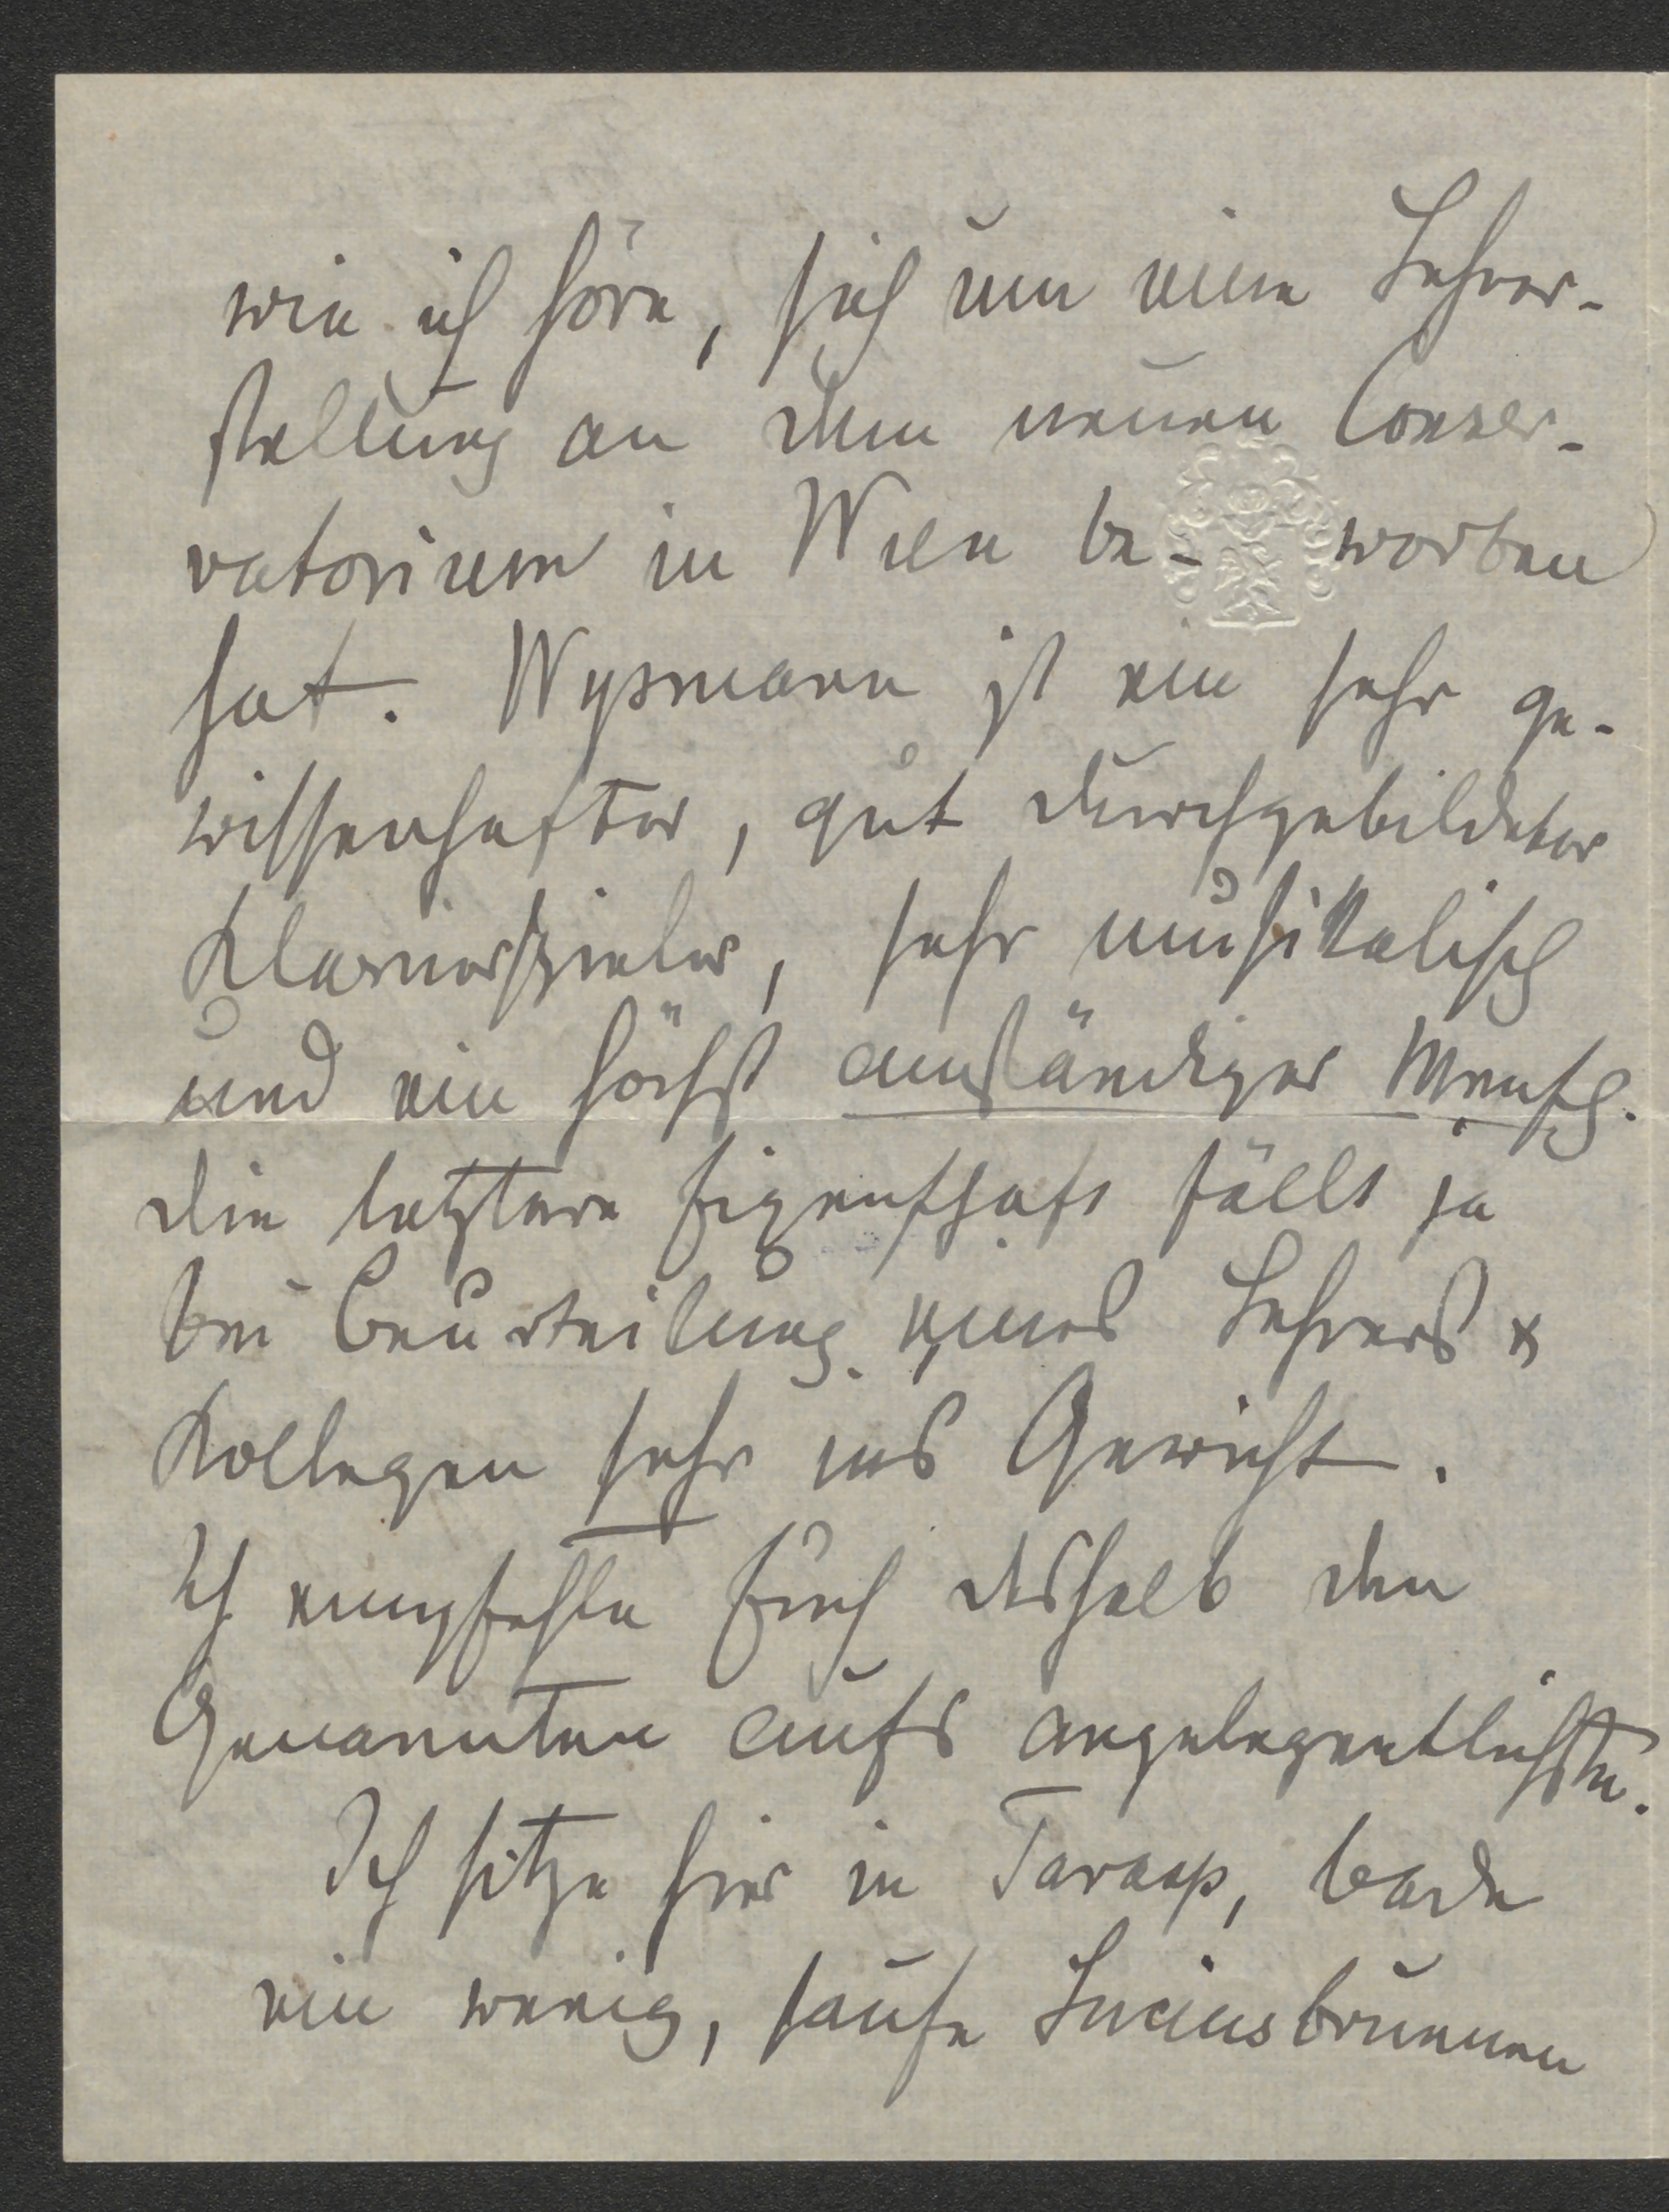 wie ich höre, sich um eine Lehrer-
stellung an dem neuen Conser-
vatorium in Wien be- worben
hat. Wysmann ist ein sehr ge-
wissenhafter, gut durchgebildeter
Klavierspieler, sehr musikalisch
und ein höchst anständiger Mensch.
die letztere Eigenschaft fällt ja
bei Beurteilung eines Lehrers &
Kollegen sehr ins Gewicht.
Ich empfehle Euch deshalb den
Genannten aufs angelegentlichste.
Ich sitze hier in Tarasp, bade
ein wenig, saufe Luciusbrunnen